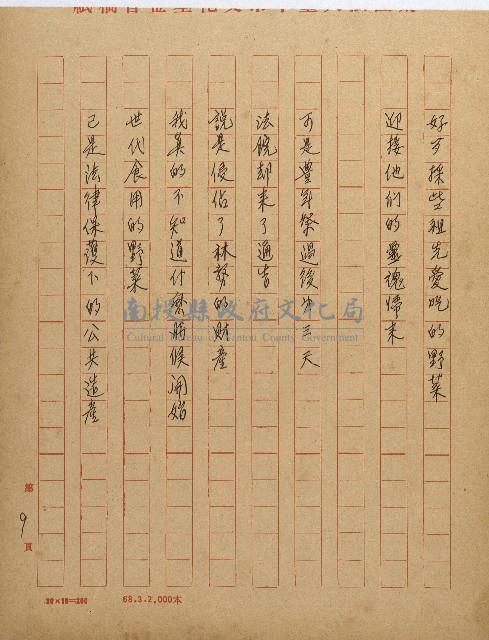 好可採些祖先愛吃的野菜
迎接他們的靈魂歸來
可是豐年祭過後廿三天
法院却來了通告
說是侵佔了林務的財產
我真的不知道什麼時候開始
世代食用的野菜
已是法律保護下的公共造產
第9頁
20×10=200
68.3.2,000本
南投縣政府文化局
Cultural Bureau of Nantou County Government